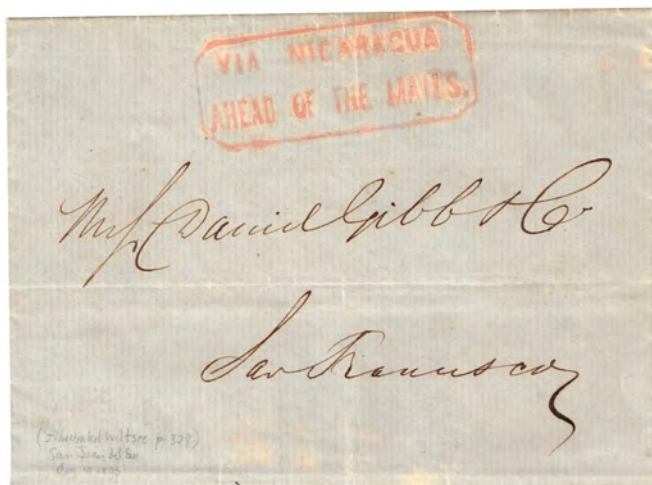 VIA NICARAGUA
AHEAD OF THE MAILS.
Mess Daniel Gibb & Co
San Francisco
(Illustrated Wiltsee p. 329)
San Juan del Sur
1853